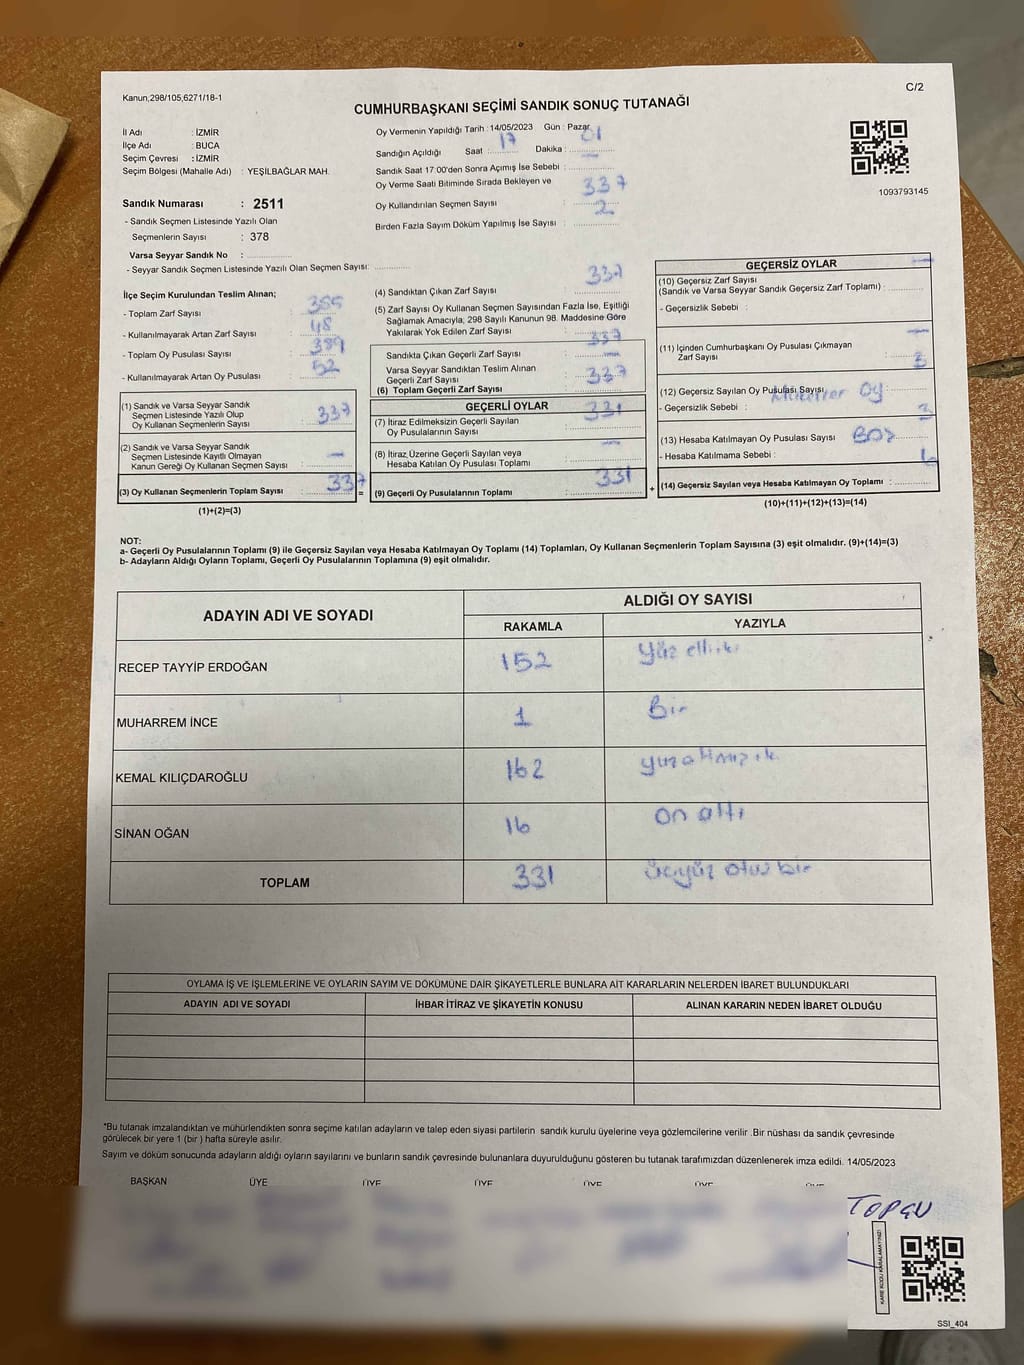 Kanun;298/105,6271/18-1
C/2
CUMHURBAŞKANI SEÇİMİ SANDIK SONUÇ TUTANAĞI
İl Adı : İZMİR
İlçe Adı : BUCA
Seçim Çevresi : İZMİR
Seçim Bölgesi (Mahalle Adı) : YEŞİLBAĞLAR MAH.
Sandık Numarası : 2511
- Sandık Seçmen Listesinde Yazılı Olan
Seçmenlerin Sayısı : 378
Varsa Seyyar Sandık No :
- Seyyar Sandık Seçmen Listesinde Yazılı Olan Seçmen Sayısı:
Oy Vermenin Yapıldığı Tarih : 14/05/2023 Gün : Pazar
Sandığın Açıldığı Saat : 17 Dakika : 01
Sandık Saat 17:00'den Sonra Açımış İse Sebebi : —
Oy Verme Saati Bitiminde Sırada Bekleyen ve
Oy Kullandırılan Seçmen Sayısı : 337
Birden Fazla Sayım Döküm Yapılmış İse Sayısı : 2
1093793145
İlçe Seçim Kurulundan Teslim Alınan;
- Toplam Zarf Sayısı :
- Kullanılmayarak Artan Zarf Sayısı : 48
- Toplam Oy Pusulası Sayısı : 389
- Kullanılmayarak Artan Oy Pusulası : 52
(1) Sandık ve Varsa Seyyar Sandık
Seçmen Listesinde Yazılı Olup
Oy Kullanan Seçmenlerin Sayısı : 337
(2) Sandık ve Varsa Seyyar Sandık
Seçmen Listesinde Kayıtlı Olmayan
Kanun Gereği Oy Kullanan Seçmen Sayısı : —
(3) Oy Kullanan Seçmenlerin Toplam Sayısı : 337
(1)+(2)=(3)
(4) Sandıktan Çıkan Zarf Sayısı : 337
(5) Zarf Sayısı Oy Kullanan Seçmen Sayısından Fazla İse, Eşitliği
Sağlamak Amacıyla, 298 Sayılı Kanunun 98. Maddesine Göre
Yakılarak Yok Edilen Zarf Sayısı :
Sandıkta Çıkan Geçerli Zarf Sayısı : 337
Varsa Seyyar Sandıktan Teslim Alınan
Geçerli Zarf Sayısı : —
(6) Toplam Geçerli Zarf Sayısı : 337
=
GEÇERLİ OYLAR
(7) İtiraz Edilmeksizin Geçerli Sayılan
Oy Pusulalarının Sayısı : 331
(8) İtiraz Üzerine Geçerli Sayılan veya
Hesaba Katılan Oy Pusulası Toplamı : —
(9) Geçerli Oy Pusulalarının Toplamı : 331
+
GEÇERSİZ OYLAR
(10) Geçersiz Zarf Sayısı
(Sandık ve Varsa Seyyar Sandık Geçersiz Zarf Toplamı) : —
- Geçersizlik Sebebi :
(11) İçinden Cumhurbaşkanı Oy Pusulası Çıkmayan
Zarf Sayısı : —
(12) Geçersiz Sayılan Oy Pusulası Sayısı : 3
- Geçersizlik Sebebi : Mükerrer Oy
(13) Hesaba Katılmayan Oy Pusulası Sayısı : 3
- Hesaba Katılmama Sebebi : Boş
(14) Geçersiz Sayılan veya Hesaba Katılmayan Oy Toplamı : 6
(10)+(11)+(12)+(13)=(14)
NOT:
a- Geçerli Oy Pusulalarının Toplamı (9) ile Geçersiz Sayılan veya Hesaba Katılmayan Oy Toplamı (14) Toplamları, Oy Kullanan Seçmenlerin Toplam Sayısına (3) eşit olmalıdır. (9)+(14)=(3)
b- Adayların Aldığı Oyların Toplamı, Geçerli Oy Pusulalarının Toplamına (9) eşit olmalıdır.
ADAYIN ADI VE SOYADI
ALDIĞI OY SAYISI
RAKAMLA YAZIYLA
RECEP TAYYİP ERDOĞAN 152 Yüz elli iki
MUHARREM İNCE 1 Bir
KEMAL KILIÇDAROĞLU 162 yüz altmış iki
SİNAN OĞAN 16 on altı
TOPLAM 331 üçyüz otuz bir
OYLAMA İŞ VE İŞLEMLERİNE VE OYLARIN SAYIM VE DÖKÜMÜNE DAİR ŞİKAYETLERLE BUNLARA AİT KARARLARIN NELERDEN İBARET BULUNDUKLARI
ADAYIN ADI VE SOYADI İHBAR İTİRAZ VE ŞİKAYETİN KONUSU ALINAN KARARIN NEDEN İBARET OLDUĞU
*Bu tutanak imzalandıktan ve mühürlendikten sonra seçime katılan adayların ve talep eden siyasi partilerin sandık kurulu üyelerine veya gözlemcilerine verilir .Bir nüshası da sandık çevresinde
görülecek bir yere 1 (bir ) hafta süreyle asılır.
Sayım ve döküm sonucunda adayların aldığı oyların sayılarını ve bunların sandık çevresinde bulunanlara duyurulduğunu gösteren bu tutanak tarafımızdan düzenlenerek imza edildi. 14/05/2023
BAŞKAN ÜYE ÜYE ÜYE ÜYE ÜYE ÜYE
KARE KODU KARALAMAYINIZ!
SSI_404